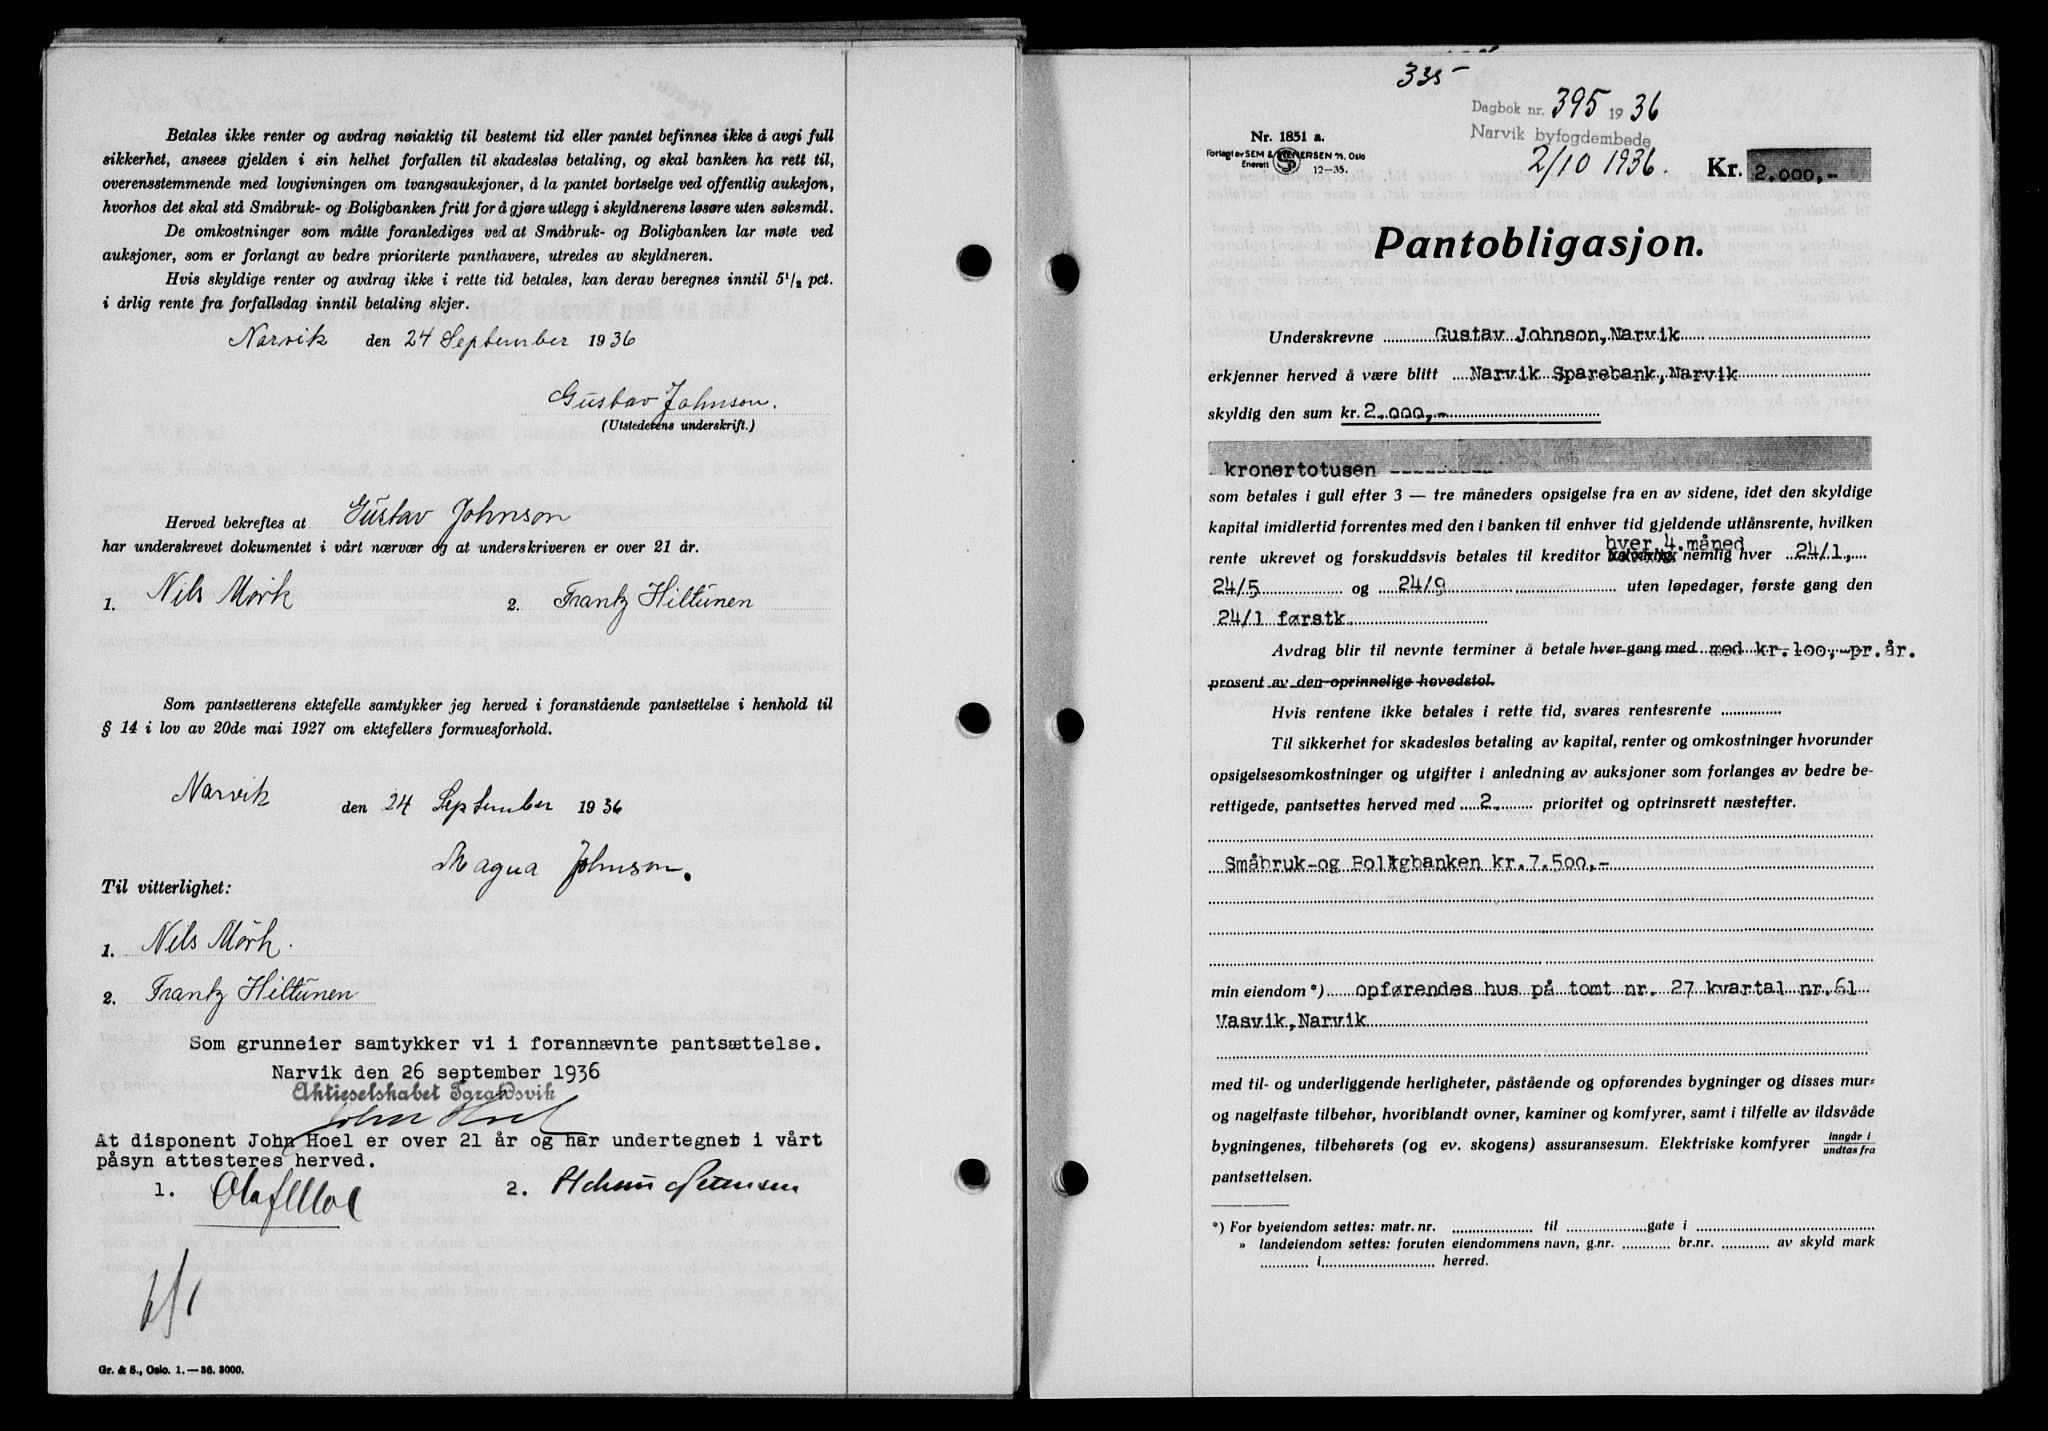 Betales ikke renter og avdrag nøiaktig til bestemt tid eller pantet befinnes ikke å avgi full
sikkerhet, ansees gjelden i sin helhet forfallen til skadesløs betaling, og skal banken ha rett til,
overensstemmende med lovgivningen om tvangsauksjoner, å la pantet bortselge ved offentlig auksjon,
hvorhos det skal stå Småbruk- og Boligbanken fritt for å gjøre utlegg i skyldnerens løsøre uten søksmål.
De omkostninger som måtte foranlediges ved at Småbruk- og Boligbanken lar møte ved
auksjoner, som er forlangt av bedre prioriterte panthavere, utredes av skyldneren.
Hvis skyldige renter og avdrag ikke i rette tid betales, kan derav beregnes inntil 5 1/2 pct.
i årlig rente fra forfallsdag inntil betaling skjer.
Narvik den 24 September 1936
Gustav Johnson.
(Utstederens underskrift.)
Herved bekreftes at Gustav Johnson
har underskrevet dokumentet i vårt nærvær og at underskriveren er over 21 år.
1. Nils Mörk 2. Frantz Hiltunen
Som pantsetterens ektefelle samtykker jeg herved i foranstående pantsettelse i henhold til
§ 14 i lov av 20de mai 1927 om ektefellers formuesforhold.
Narvik den 24 September 1936
Magna Johnson.
Til vitterlighet:
1. Nils Mörk.
2. Frantz Hiltunen
Som grunneier samtykker vi i forannævnte pantsættelse.
Narvik den 26 september 1936
Aktieselskabet Taraldsvik
John Hoel
At disponent John Hoel er over 21 år og har undertegnet i vårt
påsyn attesteres herved.
1. Olaf Moe 2.
6/1
Gr. & S., Oslo. 1.—36. 3000.
335-
Dagbok nr. 395 1936
Narvik byfogdembede
2/10 1936.
Nr. 1851 a.
Forlagt av SEM & STENERSEN A/S, Oslo
Enerett S 12-35.
Kr. 2.000,-
Pantobligasjon.
Underskrevne Gustav Johnson, Narvik
erkjenner herved å være blitt Narvik Sparebank, Narvik
skyldig den sum kr. 2.000,-
kronertotusen --------
som betales i gull efter 3 — tre måneders opsigelse fra en av sidene, idet den skyldige
kapital imidlertid forrentes med den i banken til enhver tid gjeldende utlånsrente, hvilken
hver 4. måned
rente ukrevet og forskuddsvis betales til kreditor nemlig hver 24/1,
24/5 og 24/9 uten løpedager, første gang den
24/1 førstk.
Avdrag blir til nevnte terminer å betale hver gang med med kr.100,-pr.år.
prosent av den oprinnelige hovedstol.
Hvis rentene ikke betales i rette tid, svares rentesrente
Til sikkerhet for skadesløs betaling av kapital, renter og omkostninger hvorunder
opsigelsesomkostninger og utgifter i anledning av auksjoner som forlanges av bedre be-
rettigede, pantsettes herved med 2. prioritet og optrinsrett næstefter.
Småbruk-og Boligbanken kr.7.500,-
min eiendom *) opførendes hus på tomt nr. 27 kvartal nr.61
Vasvik, Narvik
med til- og underliggende herligheter, påstående og opførendes bygninger og disses mur-
og nagelfaste tilbehør, hvoriblandt ovner, kaminer og komfyrer, samt i tilfelle av ildsvåde
bygningenes, tilbehørets (og ev. skogens) assuransesum. Elektriske komfyrer inngår i
undtas fra
pantsettelsen.
*) For byeiendom settes: matr. nr. til gate i
» landeiendom settes: foruten eiendommens navn, g.nr. br.nr. av skyld mark
i herred.